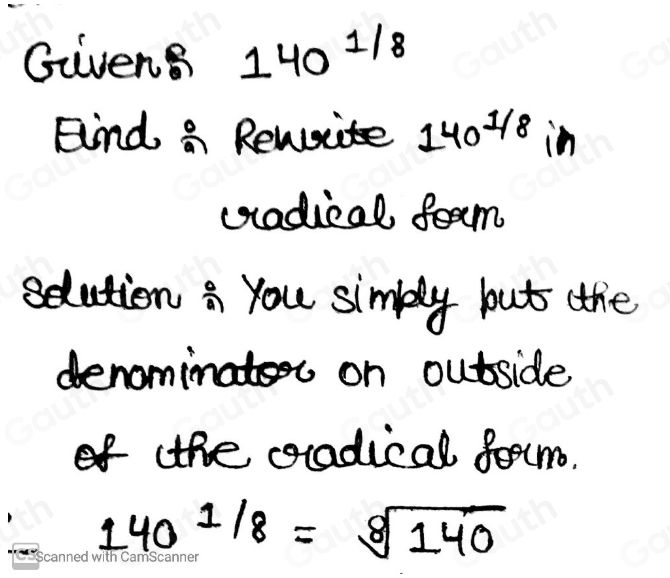 Given: 140 1/8
Find : Rewrite 140 1/8 in
radical form
Solution : You simply put the
denominator on outside
of the radical form.
140 1/8 = 8√140
CS Scanned with CamScanner
Gauth